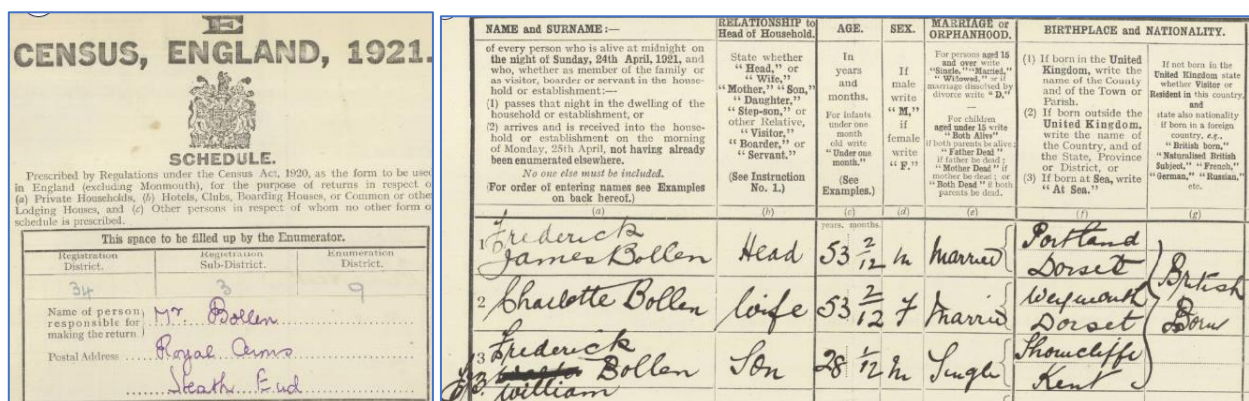 E
CENSUS, ENGLAND, 1921.
SCHEDULE.
Prescribed by Regulations under the Census Act, 1920, as the form to be used
in England (excluding Monmouth), for the purpose of returns in respect o
(a) Private Households, (b) Hotels, Clubs, Boarding Houses, or Common or othe
Lodging Houses, and (c) Other persons in respect of whom no other form o
schedule is prescribed.
This space to be filled up by the Enumerator.
Registration District.
Registration Sub-District.
Enumeration District.
34 3 9
Name of person responsible for making the return
Mr. Bollen
Postal Address
Royal Arms
Heath End
NAME and SURNAME:—
of every person who is alive at midnight on
the night of Sunday, 24th April, 1921, and
who, whether as member of the family or
as visitor, boarder or servant in the house-
hold or establishment:—
(1) passes that night in the dwelling of the
household or establishment, or
(2) arrives and is received into the house-
hold or establishment on the morning
of Monday, 25th April, not having already
been enumerated elsewhere.
No one else must be included.
(For order of entering names see Examples
on back hereof.)
(a)
RELATIONSHIP to
Head of Household.
State whether
"Head," or
"Wife,"
"Mother," "Son,"
"Daughter,"
"Step-son," or
other Relative,
"Visitor,"
"Boarder," or
"Servant."
(See Instruction
No. 1.)
(b)
AGE.
In
years
and
months.
For infants
under one
month
old write
"Under one
month."
(See
Examples.)
(c)
SEX.
If
male
write
"M,"
if
female
write
"F."
(d)
MARRIAGE or
ORPHANHOOD.
For persons aged 15
and over write
"Single," "Married,"
"Widowed," or if
marriage dissolved by
divorce write "D."
For children
aged under 15 write
"Both Alive"
if both parents be alive;
"Father Dead"
if father be dead;
"Mother Dead" if
mother be dead; or
"Both Dead" if both
parents be dead.
(e)
BIRTHPLACE and NATIONALITY.
(1) If born in the United
Kingdom, write the
name of the County
and of the Town or
Parish.
(2) If born outside the
United Kingdom,
write the name of
the Country, and of
the State, Province
or District, or
(3) If born at Sea, write
"At Sea."
(f)
If not born in the
United Kingdom state
whether Visitor or
Resident in this country,
and
state also nationality
if born in a foreign
country, e.g.,
"British born,"
"Naturalised British
Subject," "French,"
"German," "Russian,"
etc.
(g)
years. months.
1 Frederick
James Bollen Head 53 2/12 M Married Portland
Dorset
British
Born
2 Charlotte Bollen Wife 53 2/12 F Married Weymouth
Dorset
3 Frederick
Bollen Son 28 1/12 M Single Shorncliffe
Kent
William